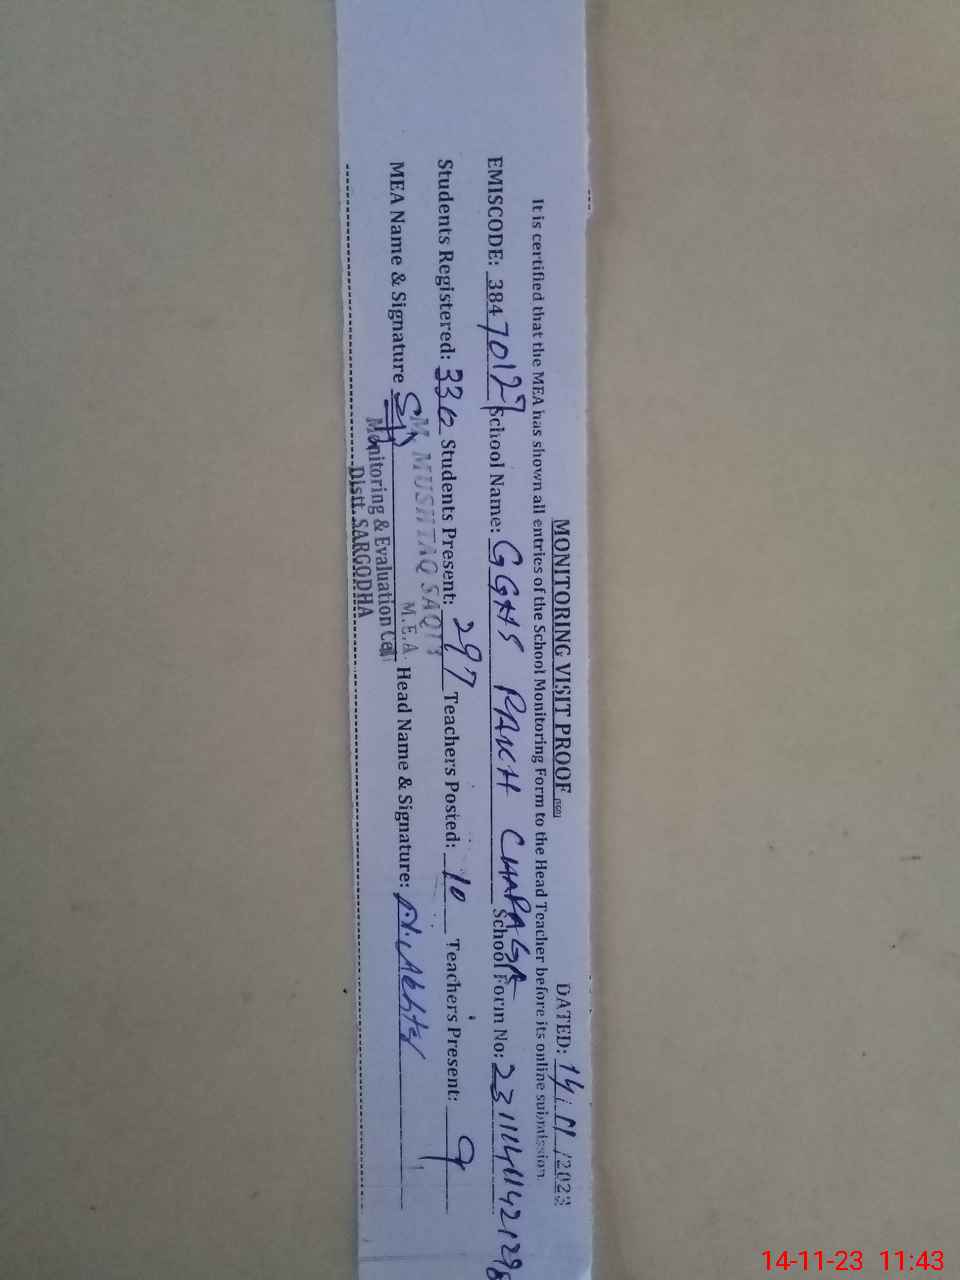 MONITORING VISIT PROOF DATED: 14 / 11 /2023
It is certified that the MEA has shown all entries of the School Monitoring Form to the Head Teacher before its online submission.
EMISCODE: 38470127 School Name: GGHS PAKH CHAPAGA School Form No:
Students Registered: 330 Students Present: 297 Teachers Posted: 10 Teachers Present: 9
M. MUSHTAQ SAQIB
MEA Name & Signature M.E.A. Head Name & Signature: Akhter
Monitoring & Evaluation Cell
Distt. SARGODHA
14-11-23 11:43